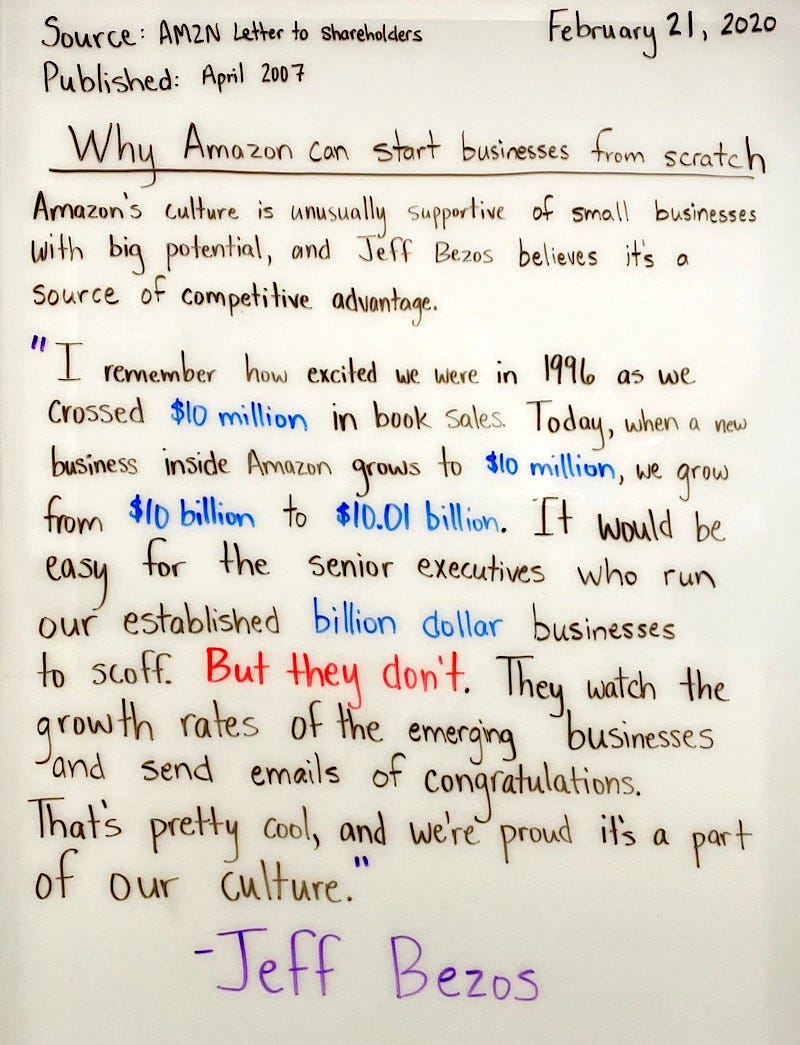 Source: AMZN Letter to Shareholders
February 21, 2020
Published: April 2007
Why Amazon can start businesses from scratch
Amazon's culture is unusually supportive of small businesses
with big potential, and Jeff Bezos believes it's a
source of competitive advantage.
"I remember how excited we were in 1996 as we
crossed $10 million in book sales. Today, when a new
business inside Amazon grows to $10 million, we grow
from $10 billion to $10.01 billion. It would be
easy for the senior executives who run
our established billion dollar businesses
to scoff. But they don't. They watch the
growth rates of the emerging businesses
and send emails of congratulations.
That's pretty cool, and we're proud it's a part
of our culture."
-Jeff Bezos